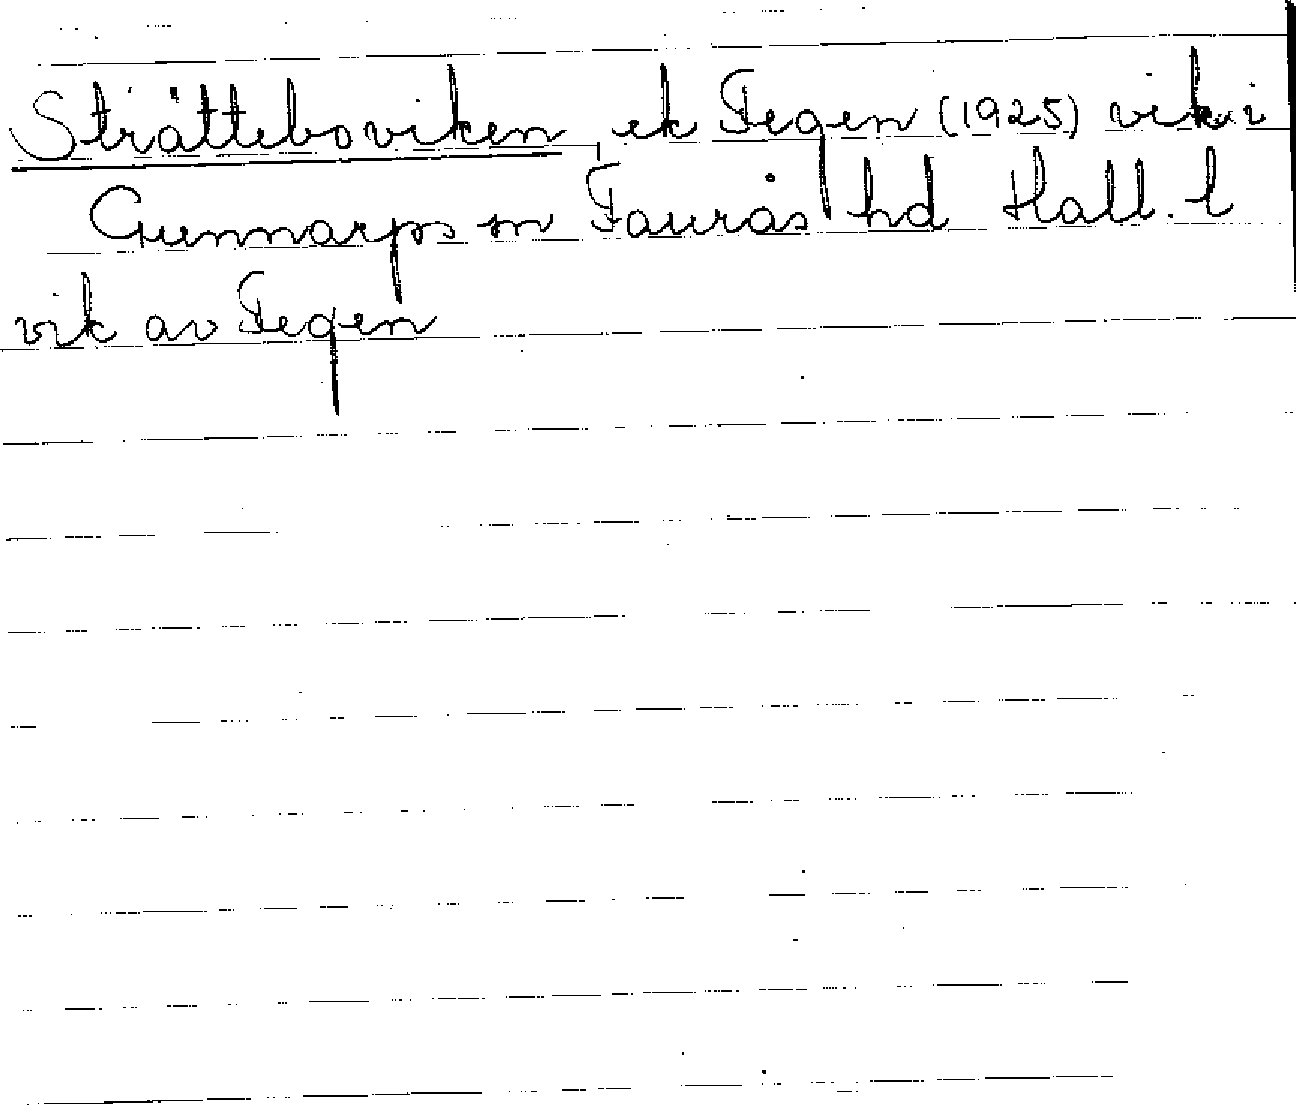 Strätteboviken ek Fegen (1925) vik i
Gunnarps sn Faurås hd Hall. l
vik av Fegen